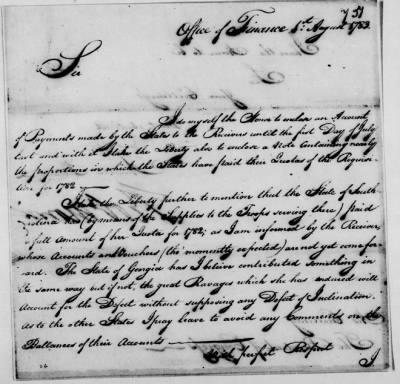 751
Office of Finance 1st August 1783.
Sir
I do myself the Honor to enclose an Account
of Payments made by the States to the Receivers until the first Day of July
last and with it I take the Liberty also to enclose a Note containing nearly
the proportions in which the States have paid their Quotas of the Requisi
tion for 1782
I take the Liberty further to mention that the State of South
Carolina has (by means of the Supplies to the Troops serving there) paid
full Amount of her Quota for 1782; as I am informed by the Receiver,
whose Accounts and Vouchers (tho' momently expected) are not yet come for
ward. The State of Georgia has I believe contributed something in
the same way but if not, the great Ravages which she has endured will
Account for the Defect without supposing any Defect of Inclination.
As to the other States I pray leave to avoid any Comments on the
Ballances of their Accounts
With perfect Respect
I